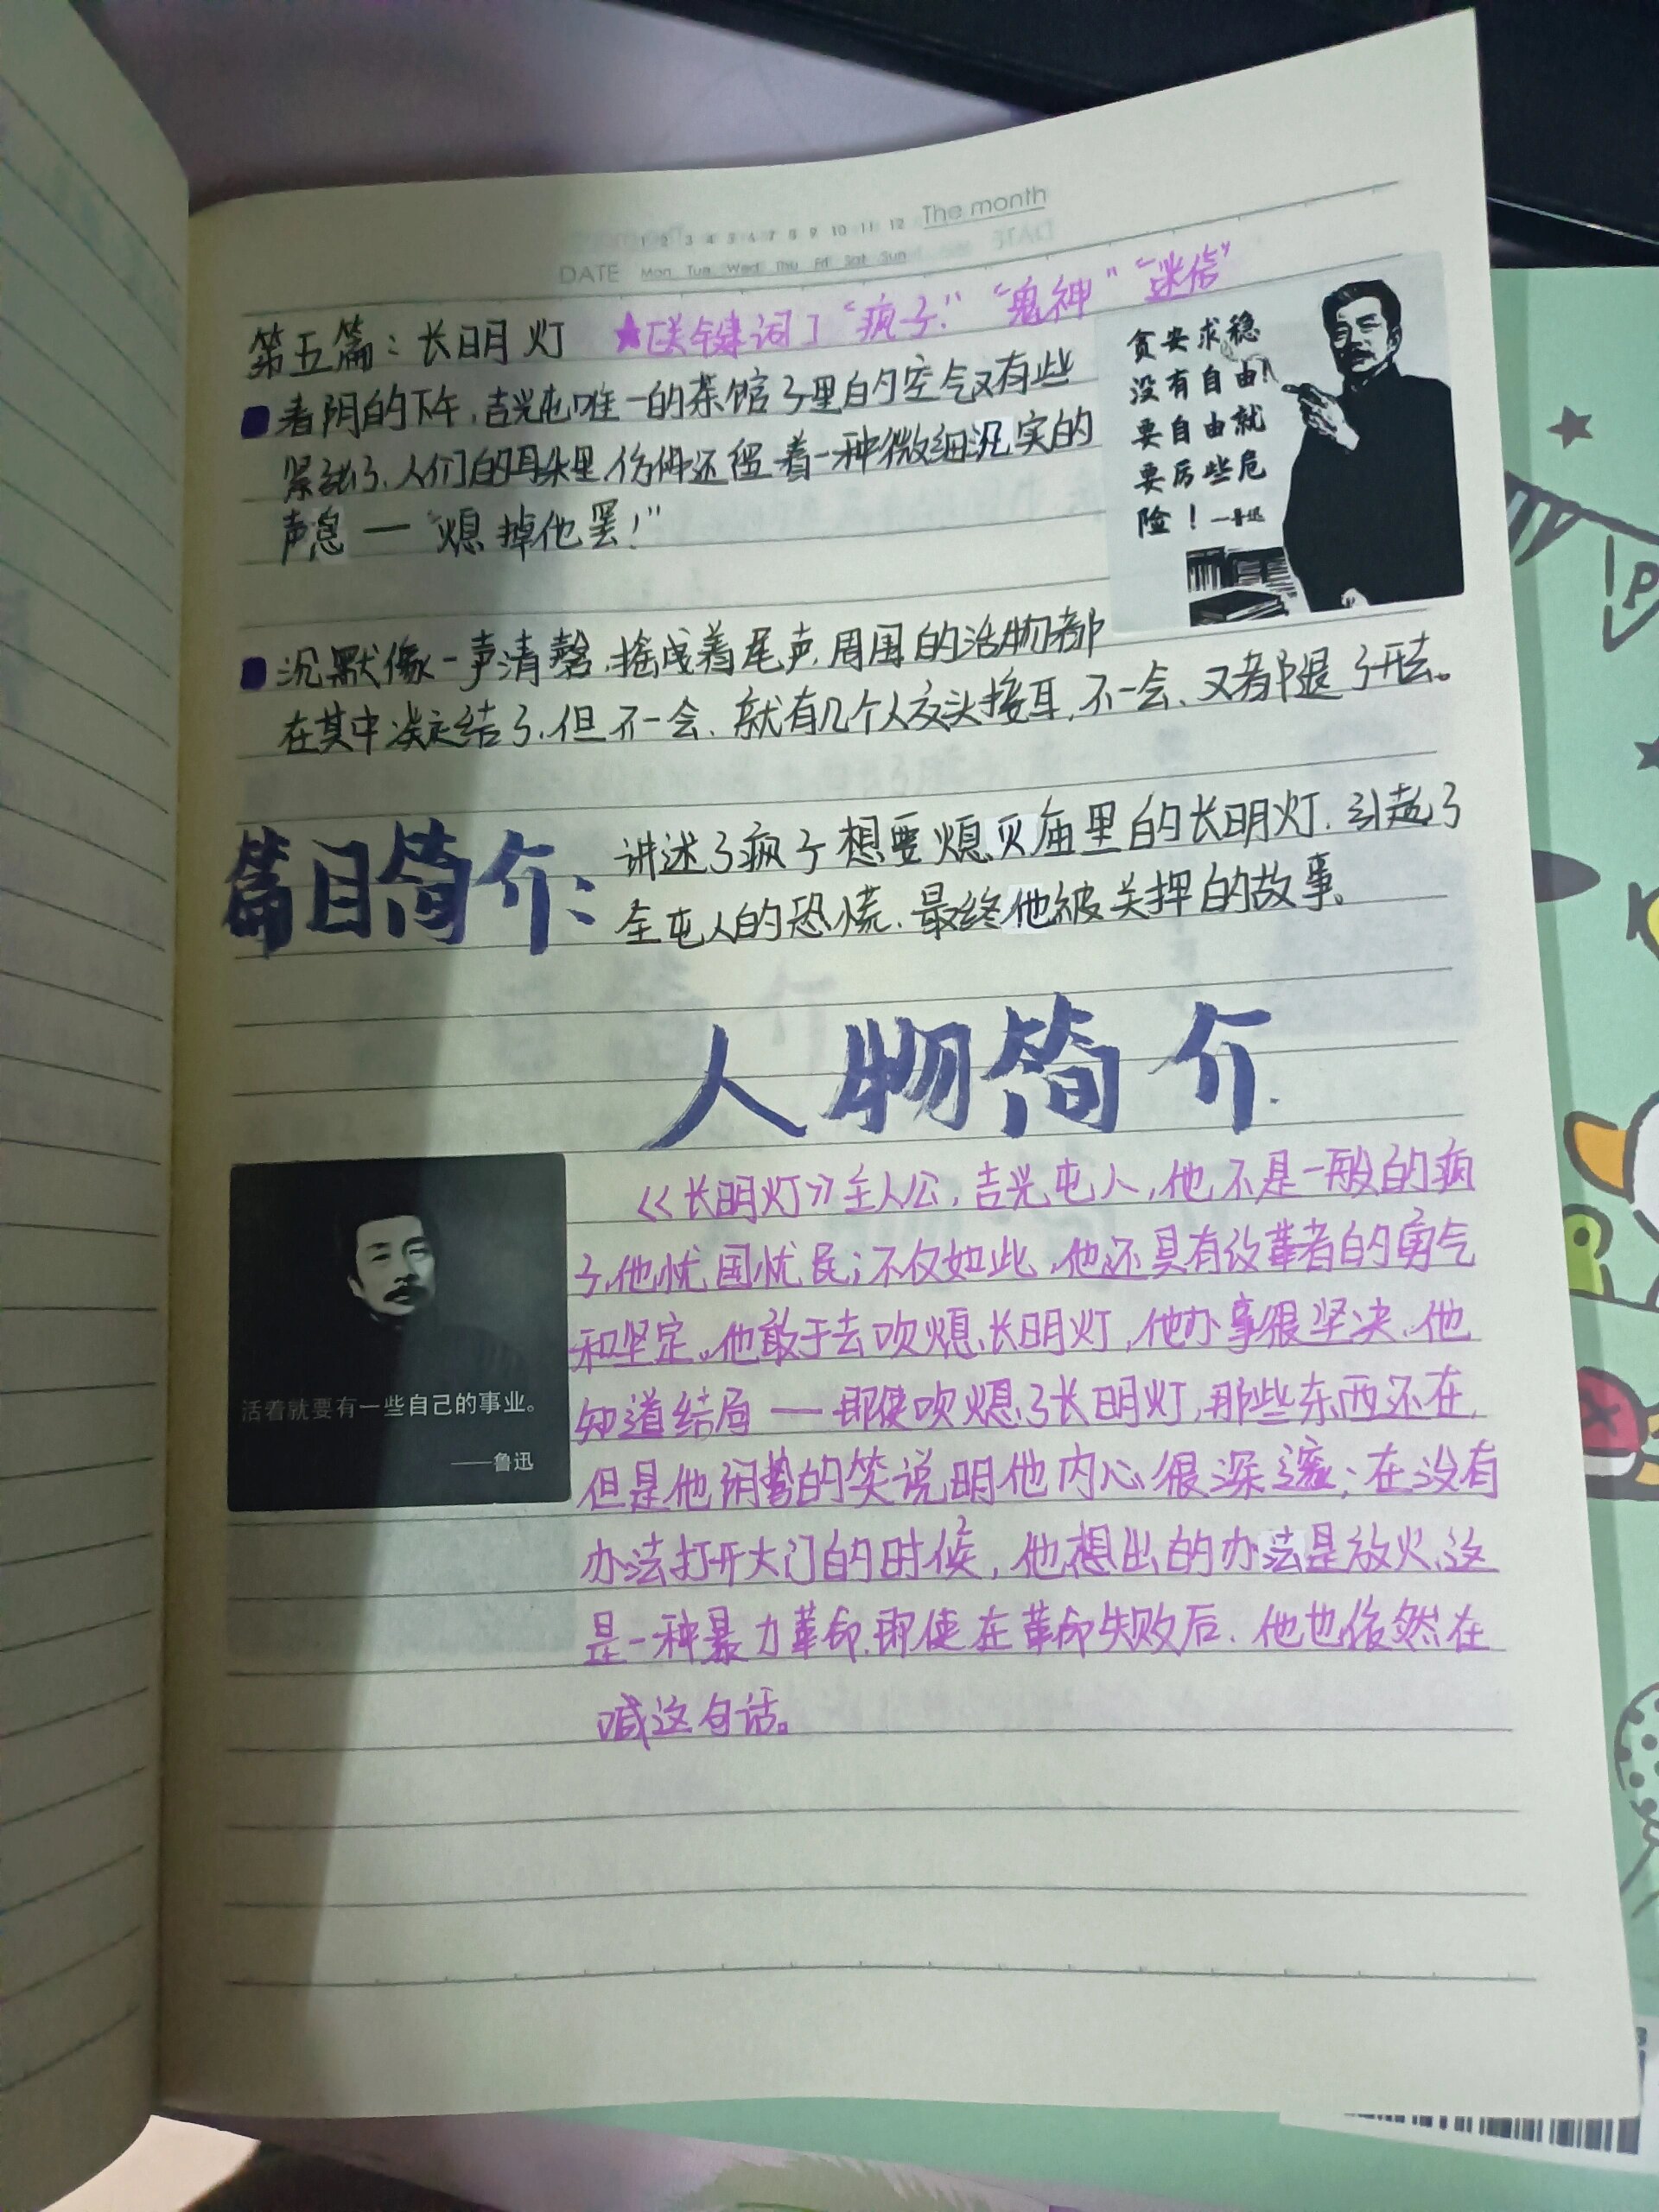 The month
1 2 3 4 5 6 7 8 9 10 11 12
DATE Mon Tue Wed Thu Fri Sat Sun
第五篇：长明灯 ★【关键词】“疯子”“鬼神”“迷信”
春阴的下午，吉光屯唯一的茶馆子里的空气又有些
紧张了，人们的耳朵里，仿佛还留着一种微细沉实的
声息——“熄掉他罢！”
贪安求稳
没有自由！
要自由就
要历些危
险！—鲁迅
沉默像一声清磬，摇曳着尾声，周围的活物都
在其中凝结了，但不一会、就有几个人交头接耳，不一会、又都退了开去。
篇目简介：
讲述了疯子想要熄灭庙里的长明灯，引起了
全屯人的恐慌，最终他被关押的故事。
人物简介
《长明灯》主人公，吉光屯人，他不是一般的疯
子，他忧国忧民；不仅如此，他还具有改革者的勇气
和坚定。他敢于去吹熄长明灯，他办事很坚决，他
知道结局——即使吹熄了长明灯，那些东西还在，
但是他阴鸷的笑说明他内心很深邃；在没有
办法打开大门的时候，他想出的办法是放火，这
是一种暴力革命，即使在革命失败后，他也依然在
喊这句话。
活着就要有一些自己的事业。
——鲁迅